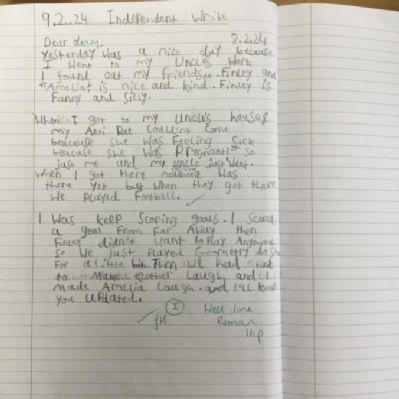 9.2.24 Independent Write
Dear diary, 8.2.24
Yesterday was a nice day because
I went to my Uncles work
I found out my Friends. Finley and
Amelia is nice and kind. Finley is
Funny and Silly.
When I got to my Uncle's house
my Anti Bet couldn't come
beacause she was Feeling Sick
beacuse she was Pregnant so
just me and my uncle just went.
When I got there was
there yet but when they got there
We Played Football.
I Was keep Scoring goals. I Scored
a goal From Far Away then
Finley didn't want to Play Anymore
so We Just Played Geometry dash
For a little bit. Then we had had
to Make other Laugh and I
made Amelia Laugh. and I'll keep
you updated.
I
Well done
Roman
1hp